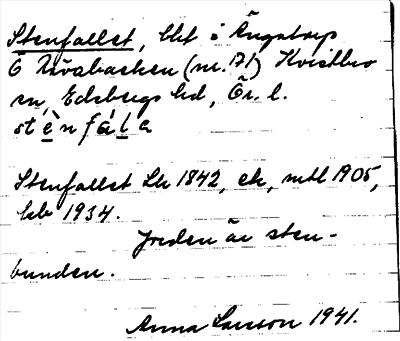 Stenfallet, bbt i Ängatorp
Ö Kvistbro
sn, Edsbergs hd, Ör. l.
stènfála
Stenfallet Lk 1842, ek, mtl 1905,
hb 1934.
Jorden är sten-
bunden.
Anna Larsson 1941.